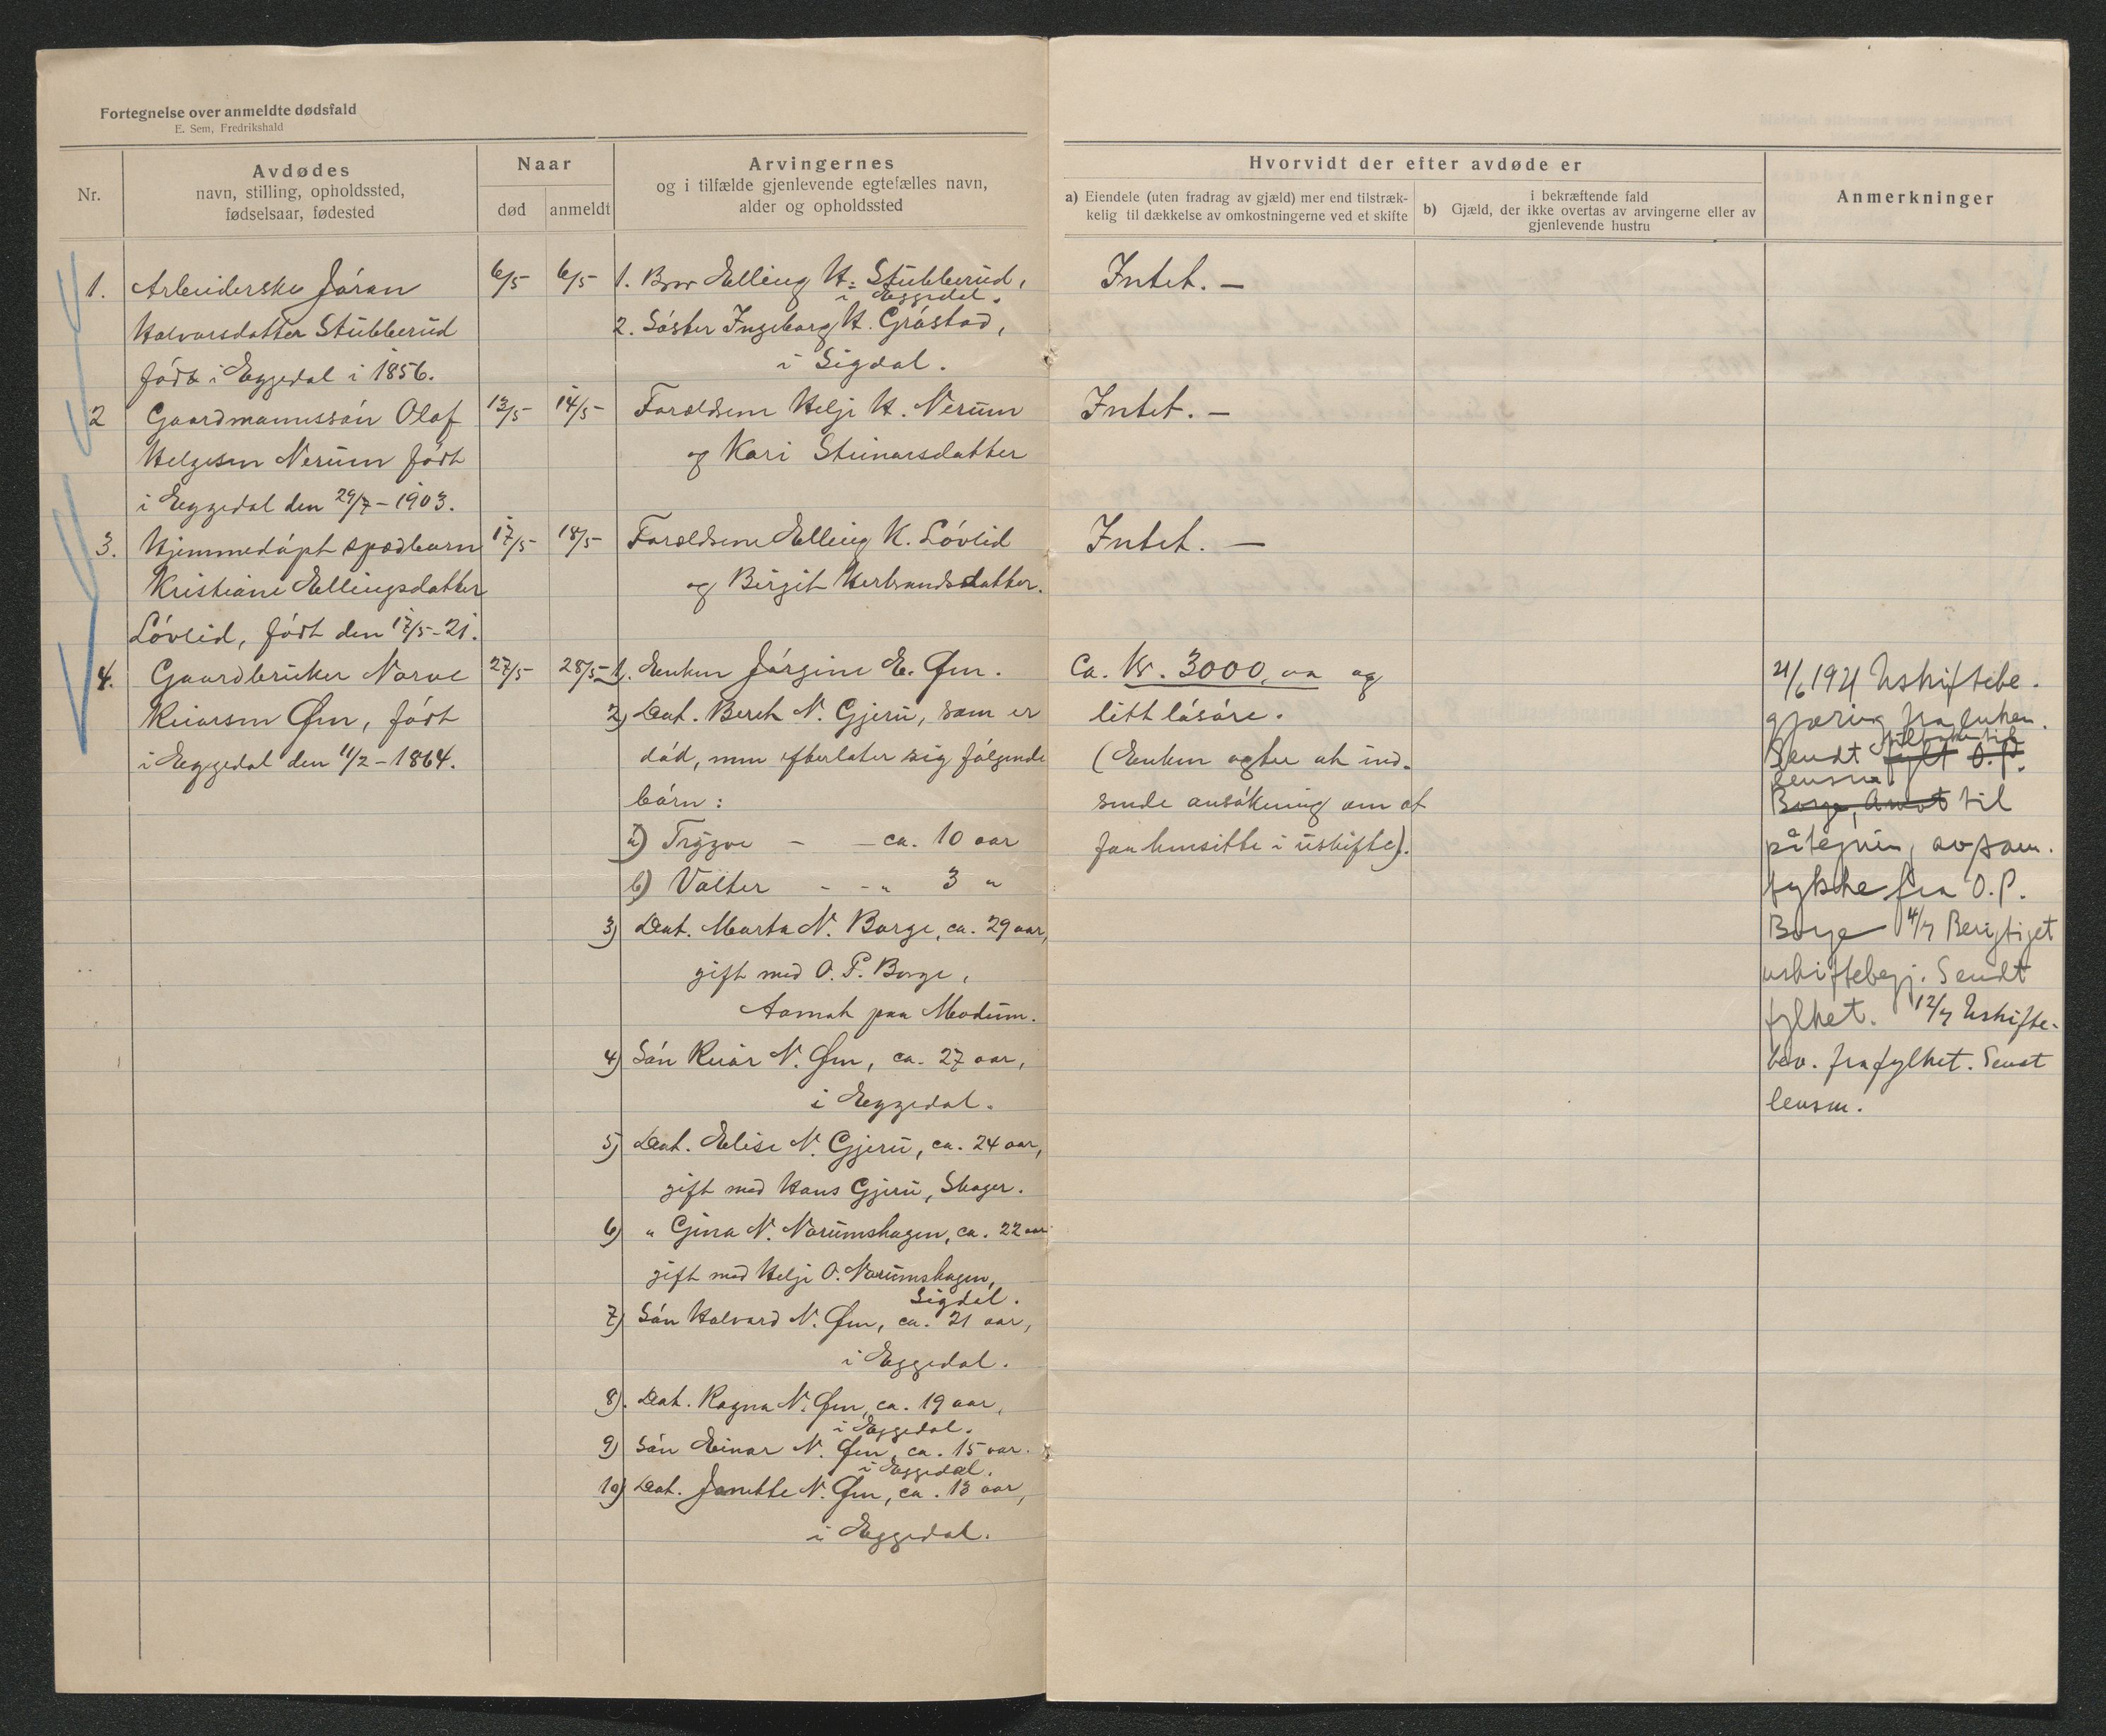 Fortegnelse over anmeldte dødsfald
E. Sem, Fredrikshald
Nr.
Avdødes
navn, stilling, opholdssted,
fødselsaar, fødested
Naar
død
anmeldt
Arvingernes
og i tilfælde gjenlevende egtefælles navn,
alder og opholdssted
Hvorvidt der efter avdøde er
a) Eiendele (uten fradrag av gjæld) mer end tilstræk-
kelig til dækkelse av omkostningerne ved et skifte
i bekræftende fald
b) Gjæld, der ikke overtas av arvingerne eller av
gjenlevende hustru
Anmerkninger
1. Arbeiderske Jóran
Halvorsdatter Stubberud
fódt i Eggedal i 1856.
6/5 6/5
1. Bror Elling H. Stubberud,
i Eggedal.
2. Sóster Ingeborg H. Gróstad,
i Sigdal.
Intet. –
2 Gaardmannssón Olaf
Helgesen Nerum fódt
i Eggedal den 29/7 – 1903.
13/5 14/5
Forældrene Helje H. Nerum
og Kari Steinarsdatter
Intet. –
3. Hjemmedópt spædbarn
Kristiane Ellingsdatter
Lóvlid, fódt den 17/5 – 21.
17/5 18/5
Forældrene Elling K. Lóvlid
og Birgit Herbrandsdatter.
Intet. –
4. Gaardbruker Narve
Reiarsen Øen, fódt
i Eggedal den 11/2 – 1864.
27/5 28/5
1). Enken Jórgine E. Øen.
2) Dat. Beret N. Gjeru, som er
dód, men efterlater sig fólgende
bórn:
a) Trygve – – ca. 10 aar
b) Valter - - " 3 "
3) Dat. Marta N. Borge, ca. 29 aar,
gift med O. P. Borge,
Aamot paa Modum.
4) Són Reiar N. Øen, ca. 27 aar,
i Eggedal.
5) Dat. Elise N. Gjeru, ca. 24 aar,
gift med Hans Gjeru, Skoger.
6) " Gina N. Narumshagen, ca. 22 aar
gift med Helje O. Narumshagen,
Sigdal.
7) Són Halvard N. Øen, ca. 21 aar,
i Eggedal.
8). Dat. Ragna N. Øen, ca. 19 aar,
i Eggedal.
9) Són Einar N. Øen, ca. 15 aar.
i Eggedal.
10) Dat. Janette N. Øen, ca. 13 aar,
i Eggedal.
Ca. Kr. 3000, oo og
litt lósóre.
(Enken agter at ind-
sende ansókning om at
faa hensitte i uskifte).
21/6 1921 Uskiftebe-
gjæring fra enken.
tilbake til
Sendt fylk O. P.
lensm
Borge, Aamot til
påtegnin, av sam-
tykke fra O. P.
Borge 4/7 Berigtiget
uskiftebegj. Sendt
fylket. 12/7 Uskifte-
bev. fra fylket. Sendt
lensm.